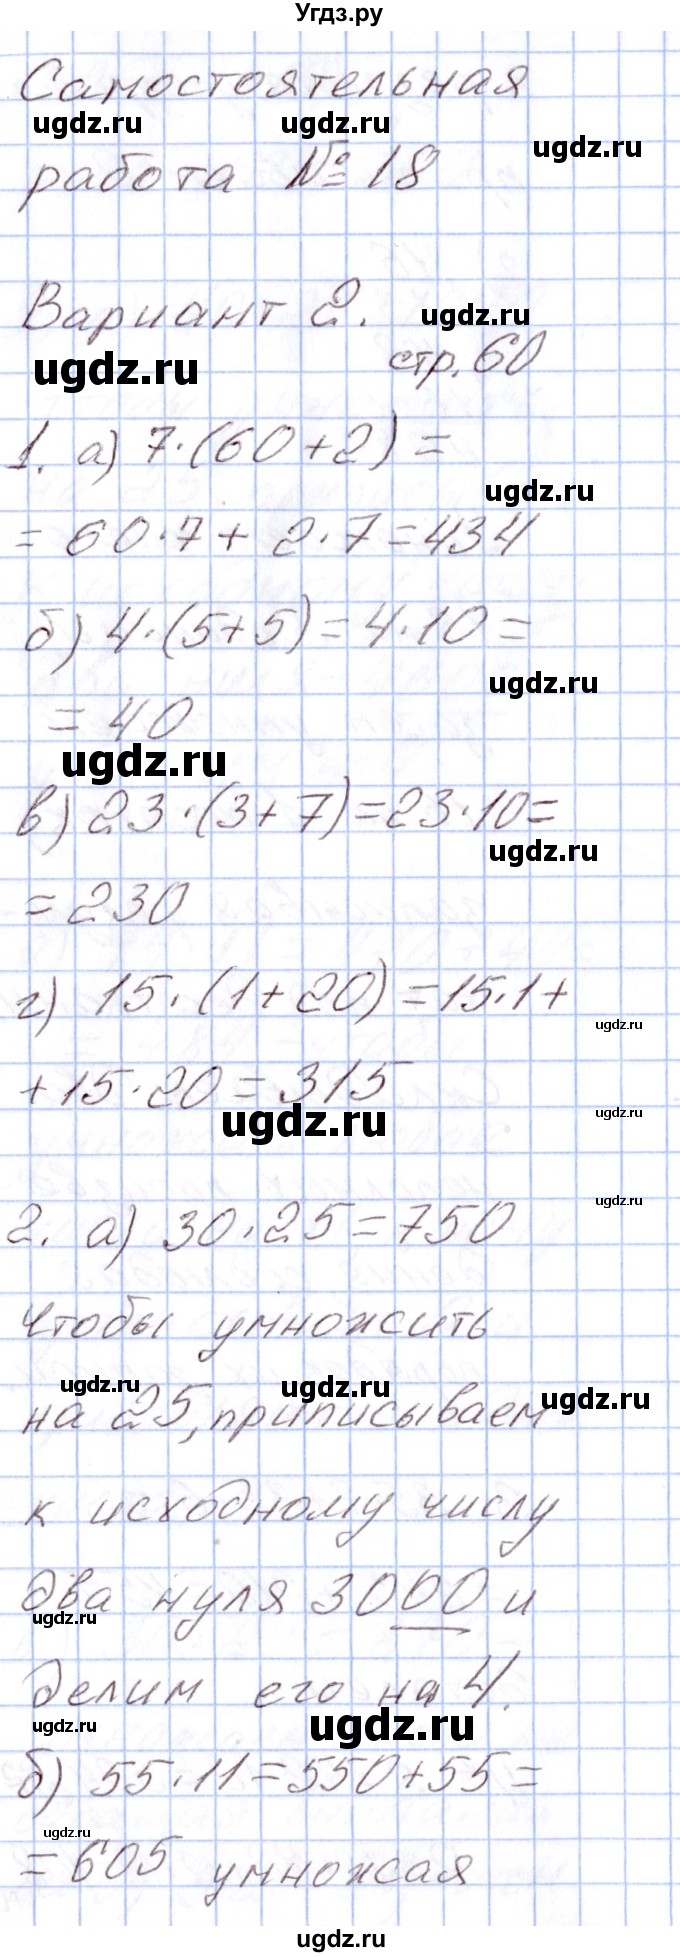 Угдз.ру
Самостоятельная
ugdz.ru ugdz.ru ugdz.ru
работа № 18
Вариант 2.
ugdz.ru
ugdz.ru стр. 60
1. а) 7·(60+2)=
ugdz.ru
= 60·7+ 2·7=434
б) 4·(5+5)=4·10=
ugdz.ru
= 40
ugdz.ru
в) 23·(3+7)=23·10=
ugdz.ru
= 230
г) 15·(1+20)=15·1+
ugdz.ru
+15·20=315
ugdz.ru ugdz.ru
ugdz.ru
2. а) 30·25=750
Чтобы умножить
ugdz.ru ugdz.ru ugdz.ru
на 25, приписываем
к исходному числу
два нуля 3000 и
ugdz.ru
делим его на 4.
ugdz.ru ugdz.ru
б) 55·11=550+55=
ugdz.ru
=605 умножая
ugdz.ru